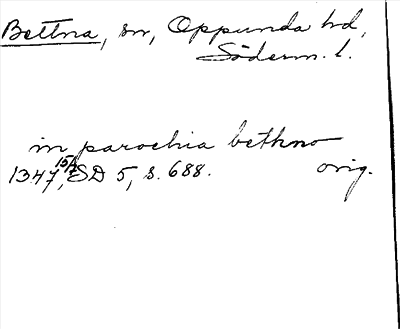 Bettna, sn, Oppunda hd,
Söderm. l.
in parochia bethno
1347, SD 5, s. 688. orig.